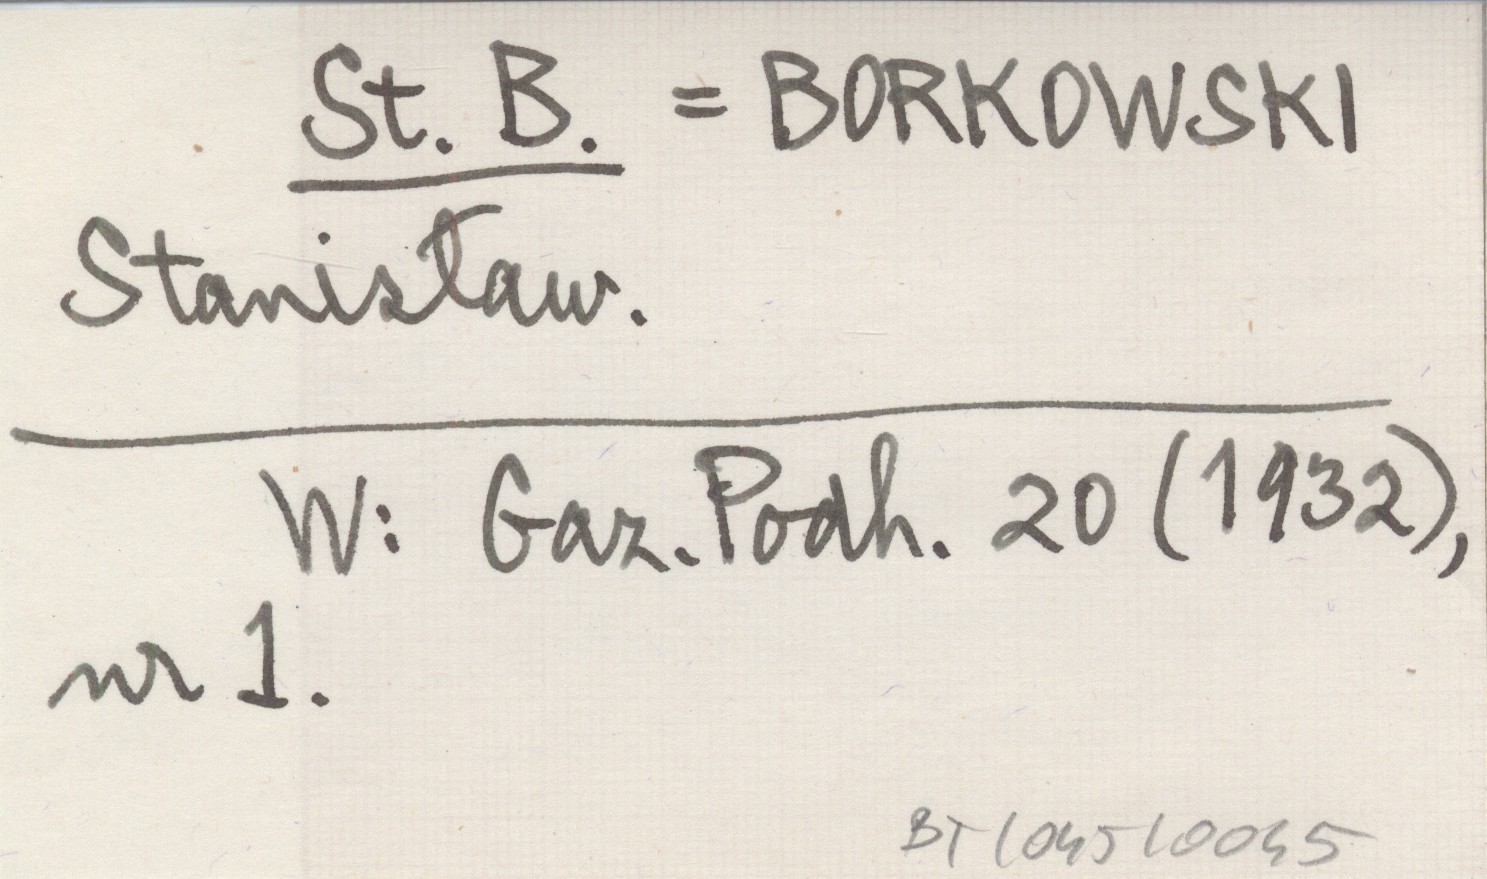 St. B. = BORKOWSKI
Stanisław.
W: Gaz. Podh. 20 (1932),
nr 1.
BT/045/0045